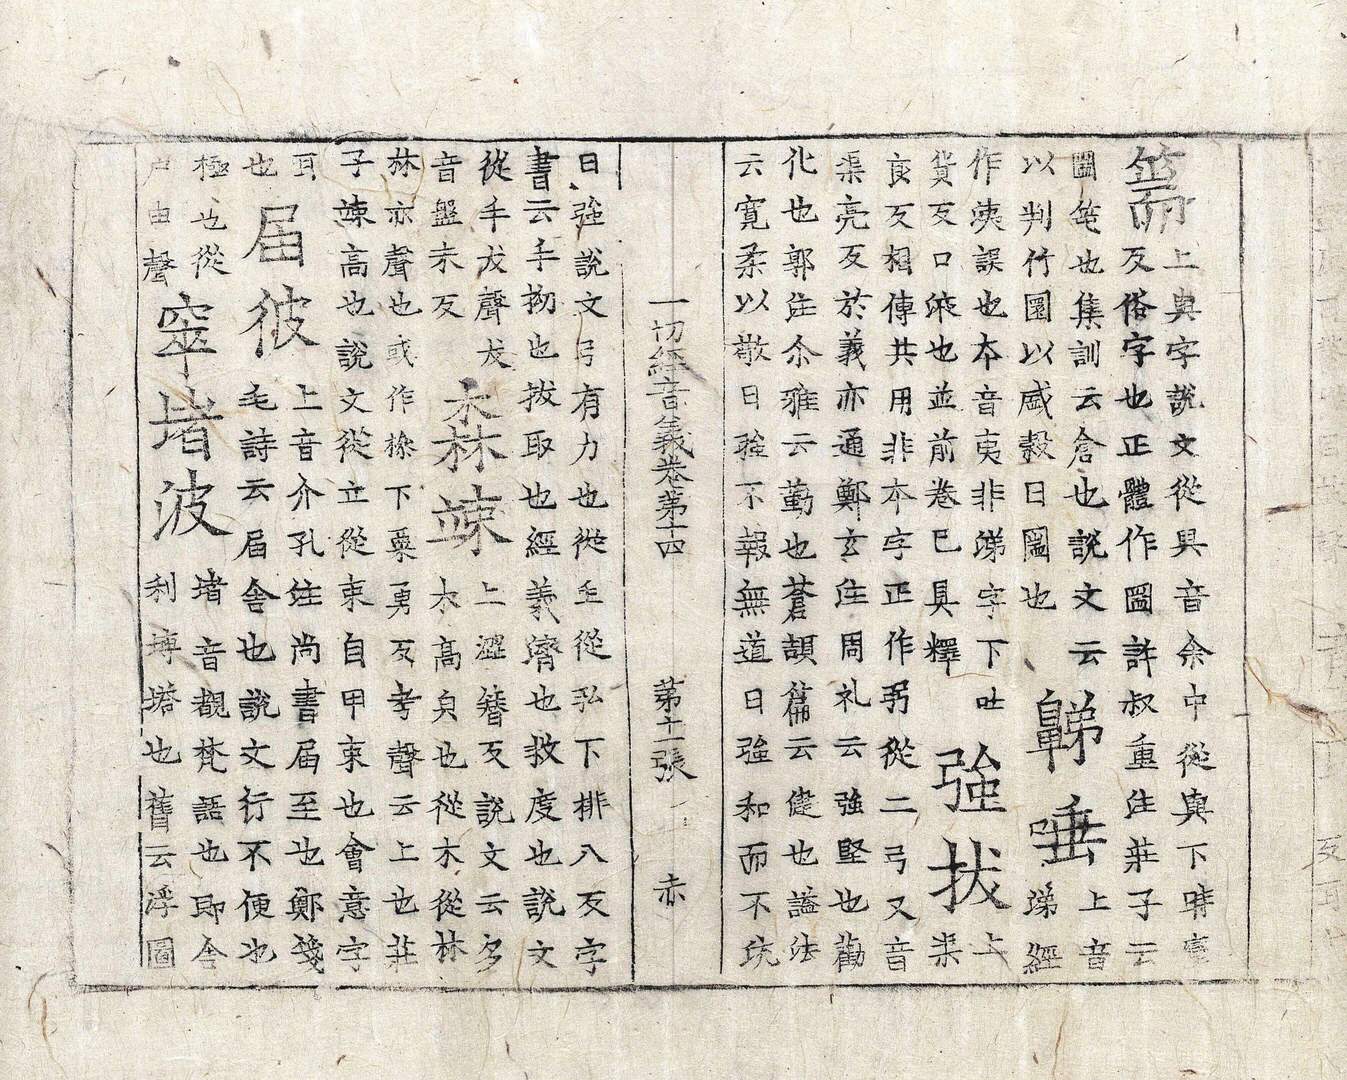 篅上與字說文從具音余中從與下時專
反俗字也正體作圌許叔重注莊子云
圌笔也集訓云倉也說文云
以判竹圜以盛穀曰圌也
𪖦唾上音
洟經
作洟誤也本音夷非涕字下吐
貨反口液也並前卷已具釋
強拔上
渠
良反相傳共用非本字正作弜從二弓又音
渠亮反於義亦通鄭玄注周礼云強堅也勸
化也郭注尒雅云勤也蒼頡篇云健也謚法
云寬柔以敬曰強不報無道曰強和而不㳅
一切經音義卷第十四 第十一張 赤
日強說文弓有力也從 從弘下排八反字
書云手拗也拔取也經義濟也救度也說文
從手犮聲犮
音盤末反
森竦上澀簪反說文云多
木高皃也從木從林
林亦聲也或作槮下粟勇反考聲云上也莊
子竦高也說文從立從束自申束也會意字
耳
也
屆彼上音介孔注尚書屆至也鄭箋
毛詩云屆舍也說文行不便也
極也從
尸由聲
窣堵波堵音覩梵語也即舍
利塼塔也舊云浮圖